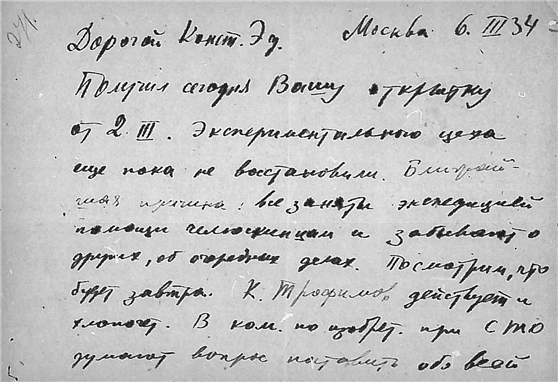 271.
Москва 6. III 34
Дорогой Конст. Эд.
Получил сегодня Вашу открытку
от 2 III. Экспериментального цеха
еще пока не восстановили. Ближай-
шая причина: все заняты экспедицией
помощи челюскинцам и забывают о
других, об очередных делах. Посмотрим, что
будет завтра. К. Трофимов действует и
хлопочет. В ком. по изобрет. при СТО
думают вопрос поставить обо всей